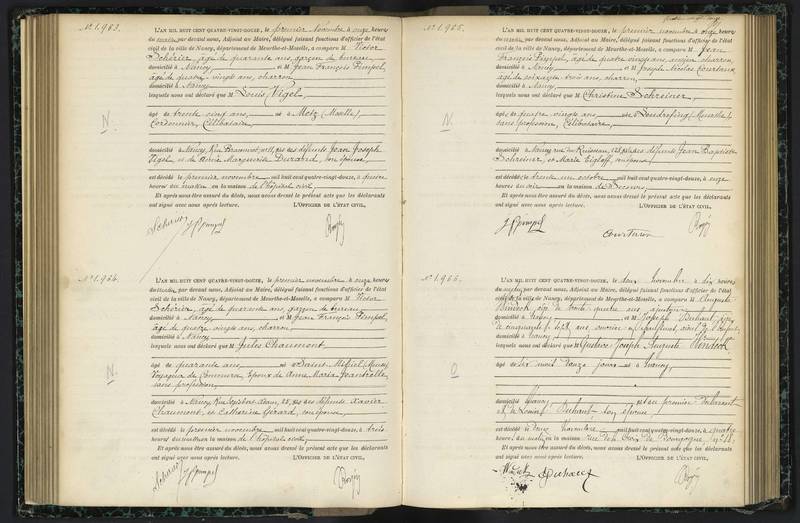 N° 1.963.
L'AN MIL HUIT CENT QUATRE-VINGT-DOUZE, le premier Novembre à onze heures
du matin, par devant nous, Adjoint au Maire, délégué faisant fonctions d'officier de l'état
civil de la ville de Nancy, département de Meurthe-et-Moselle, a comparu M Victor
âgé de quarante ans, garçon de bureau,
domicilié à Nancy et M Jean François Pimpel,
âgé de quatre vingts ans, charron,
domicilié à Nancy
lesquels nous ont déclaré que M Louis Vigel,
N.
âgé de trente cinq ans, né à Metz (Moselle),
Cordonnier, Célibataire,
domicilié à Nancy, Rue fils des défunts Jean Joseph
Vigel, et de Anne Marguerite Durand, son épouse,
est décédé le premier novembre mil huit cent quatre-vingt-douze, à
heures du matin en la maison de l'hôpital civil,
Et après nous être assuré du décès, nous avons dressé le présent acte que les déclarants
ont signé avec nous après lecture. L'OFFICIER DE L'ÉTAT CIVIL,
N° 1.964.
L'AN MIL HUIT CENT QUATRE-VINGT-DOUZE, le premier novembre à onze heures
du matin, par devant nous, Adjoint au Maire, délégué faisant fonctions d'officier de l'état
civil de la ville de Nancy, département de Meurthe-et-Moselle, a comparu M Victor
âgé de quarante ans, garçon de bureau,
domicilié à Nancy et M Jean François Pimpel,
âgé de quatre vingts ans, charron,
domicilié à Nancy
lesquels nous ont déclaré que M Jules Chaumont,
N.
âgé de quarante ans, né à Saint Mihiel (Meuse)
Voyageur de Commerce, Époux de Anne Marie
sans profession,
domicilié à Nancy, Rue 25, fils des défunts Xavier
Chaumont, et Catherine Gérard, son épouse,
est décédé le premier novembre mil huit cent quatre-vingt-douze, à trois
heures du matin en la maison de l'hôpital civil,
Et après nous être assuré du décès, nous avons dressé le présent acte que les déclarants
ont signé avec nous après lecture. L'OFFICIER DE L'ÉTAT CIVIL,
N° 1.965.
L'AN MIL HUIT CENT QUATRE-VINGT-DOUZE, le premier novembre à onze heures
du matin, par devant nous, Adjoint au Maire, délégué faisant fonctions d'officier de l'état
civil de la ville de Nancy, département de Meurthe-et-Moselle, a comparu M Jean
François Pimpel, âgé de quatre vingts ans, charron,
domicilié à Nancy et M Joseph Nicolas
âgé de soixante trois ans, charron,
domicilié à Nancy
lesquels nous ont déclaré que M Christine Schreiner,
N.
âgé de quatre vingts ans née à (Moselle)
sans profession, Célibataire,
domicilié à Nancy rue du Ruisseau, fille des défunts Jean Baptiste
Schreiner, et Marie
est décédé le trente un octobre mil huit cent quatre-vingt-douze, à onze
heures du soir en la maison de Secours,
Et après nous être assuré du décès, nous avons dressé le présent acte que les déclarants
ont signé avec nous après lecture. L'OFFICIER DE L'ÉTAT CIVIL,
N° 1.966.
L'AN MIL HUIT CENT QUATRE-VINGT-DOUZE, le deux novembre à dix heures
du matin, par devant nous, Adjoint au Maire, délégué faisant fonctions d'officier de l'état
civil de la ville de Nancy, département de Meurthe-et-Moselle, a comparu M Auguste
âgé de trente quatre ans
domicilié à Nancy et M Joseph Duhaut, âgé
de cinquante
domicilié à Nancy
lesquels nous ont déclaré que M Gustave Joseph Auguste
O
âgé de dix mois douze jours né à Nancy
domicilié à Nancy fils du premier déclarant
et de Louise Duhaut son épouse
est décédé le deux novembre mil huit cent quatre-vingt-douze, à quatre
heures du matin en la maison rue de la Croix de Bourgogne, n° 18,
Et après nous être assuré du décès, nous avons dressé le présent acte que les déclarants
ont signé avec nous après lecture. L'OFFICIER DE L'ÉTAT CIVIL,
Duhaut